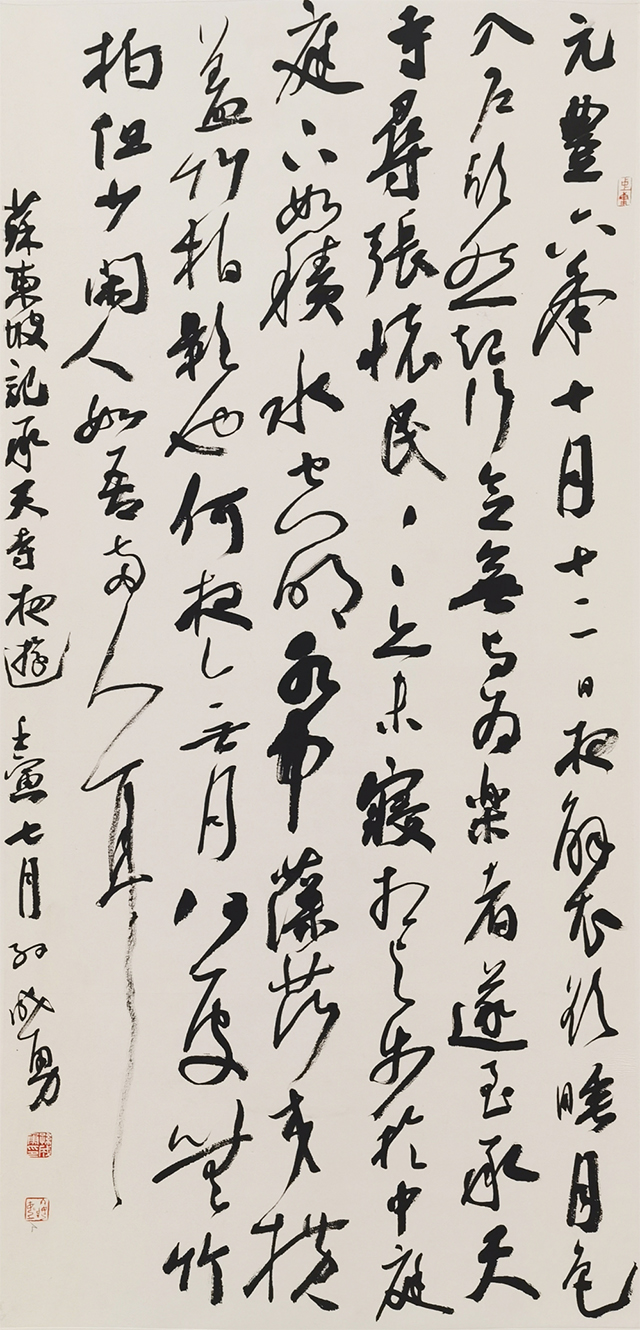 元豐六年十月十二日夜解衣欲睡月色
入戶欣然起行念無與為樂者遂至承天
寺尋張懷民〻〻亦未寢相與步於中庭
庭下如積水空明水中藻荇交橫
蓋竹柏影也何夜無月何處無竹
柏但少閑人如吾兩人耳
蘇東坡記承天寺夜遊 壬寅七月 孫成勇